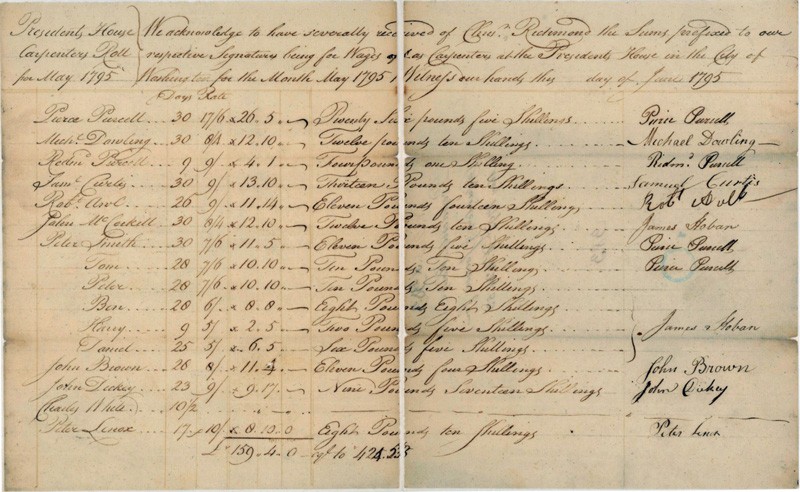 Presidents House Carpenters Roll for May 1795
We acknowledge to have severally received of Clemt. Richmond the Sums prefixed to our
respective Signatures being for Wages as Carpenters at the Presidents House in the City of
Washington for the Month May 1795 Witness our hands this day of June 1795
Days Rate
Pierce Purcell 30 17/6 26.5 Twenty Six pounds five Shillings Peirce Purcell
Michl. Dowling 30 8/4 12.10 Twelve pounds ten Shillings Michael Dowling
Redmd. Purcell 9 9/ 4.1 Four pounds one Shilling Redmd. Purcell
Saml. Curtis 30 9/ 13.10 Thirteen Pounds ten Shillings Samuel Curtis
Robt. 26 9/ 11.14 Eleven Pounds fourteen Shillings Robt.
Peter McCorkill 30 8/4 12.10 Twelve Pounds ten Shillings James Hoban
Peter Smith 30 7/6 11.5 Eleven Pounds five Shillings Peirce Purcell
Tom 28 7/6 10.10 Ten Pounds Ten Shillings Peirce Purcell
Peter 28 7/6 10.10 Ten Pounds Ten Shillings
Ben 28 6/ 8.8 Eight Pounds Eight Shillings
Harry 9 5/ 2.5 Two Pounds five Shillings James Hoban
Daniel 25 5/ 6.5 Six Pounds five Shillings
John Brown 28 8/ 11.4 Eleven Pounds four Shillings John Brown
John Dickey 23 9/ 9.17 Nine Pounds Seventeen Shillings John Dickey
Charles White 10 1/2
Peter Lenox 17 10/ 8.10.0 Eight Pounds ten Shillings Peter Lenox
159.4.0